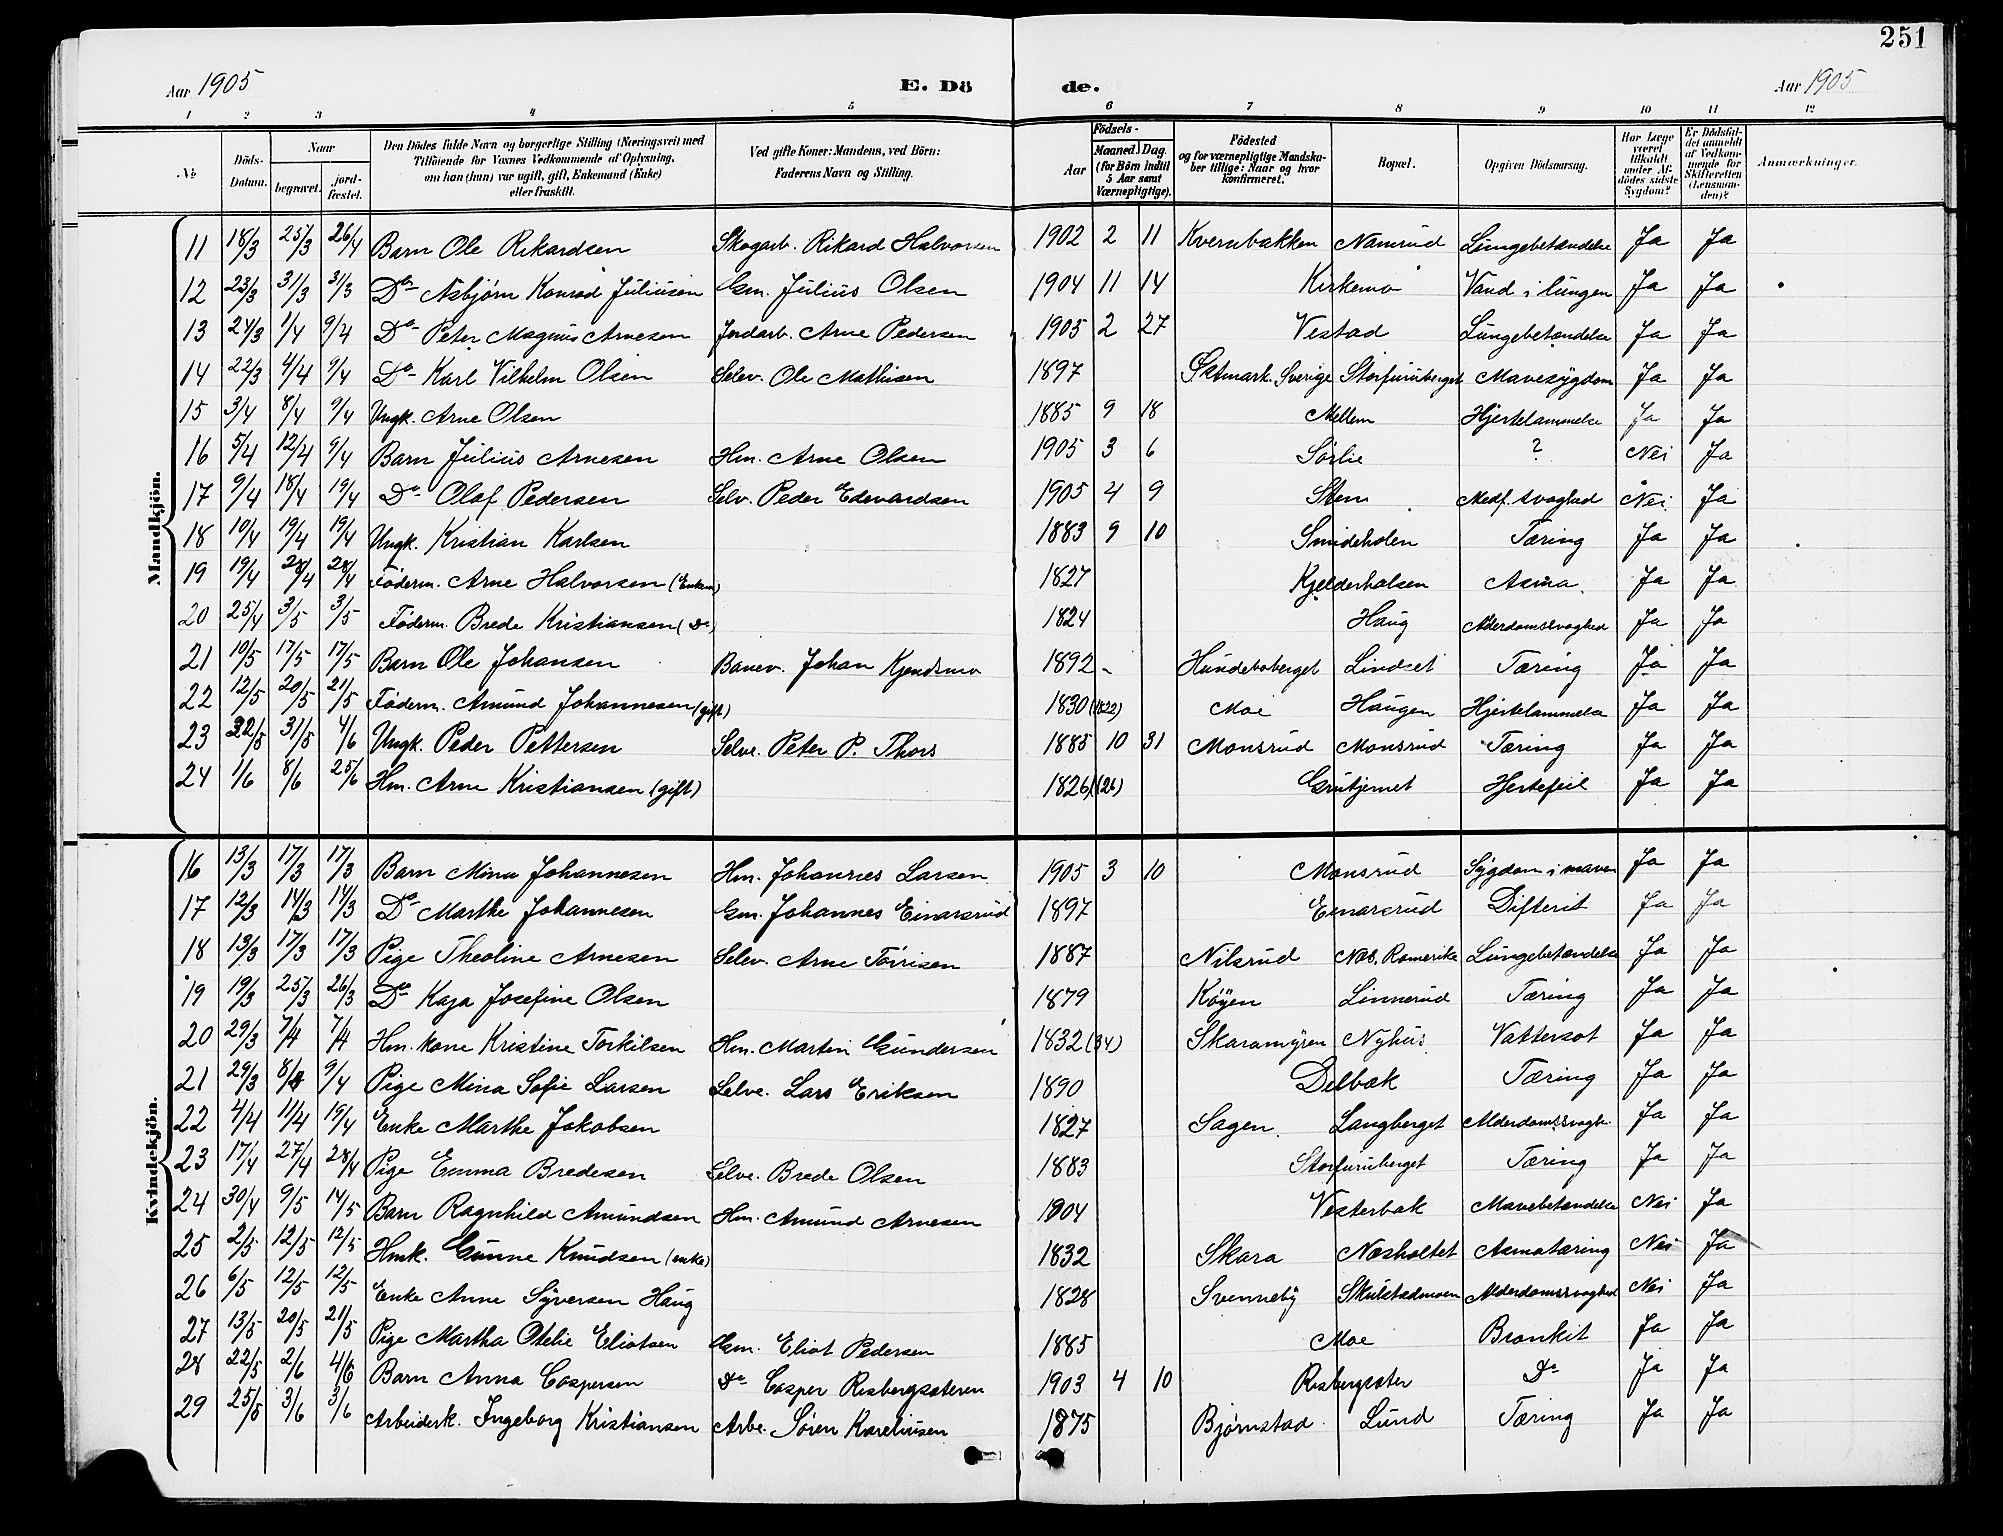 251
Aar 1905 E. Dö de. Aar 1905
1 2 3 4 5 6 7 8 9 10 11 12
No Döds-Datum. Naar begravet. jord-fæstet. Den Dödes fulde Navn og borgerlige Stilling (Næringsvei) med Tilföiende for Voxnes Vedkommende af Oplysning, om han (hun) var ugift, gift, Enkemand (Enke) eller fraskilt. Ved gifte Koner: Mandens, ved Börn: Faderens Navn og Stilling. Födsels- Aar Maaned Dag (for Börn indtil 5 Aar samt Værnepligtige). Födested og for værnepligtige Mandskaber tillige: Naar og hvor konfirmeret. Bopæl. Opgiven Dödsaarsag. Har Læge været tilkaldt under Afdödes sidste Sygdom? Er Dödsfaldet anmeldt af Vedkommende for Skifteretten (Lensmanden)? Anmærkninger.
Mandkjön.
11 18/3 25/3 26/4 Barn Ole Rikardsen Skogarb. Rikard Halvorsen 1902 2 11 Kvernbakken Namrud Lungebetændelse Ja Ja
12 23/3 31/3 31/3 Do Asbjørn Konrad Juliusen Gm. Julius Olsen 1904 11 14 Kirkemo Vand i lungen Ja Ja
13 24/3 1/4 9/4 Do Peter Magnus Arnesen Jordarb. Arne Pedersen 1905 2 27 Vestad Lungebetændelse Ja Ja
14 22/3 4/4 9/4 Do Karl Vilhelm Olsen Selev. Ole Mathisen 1897 Østmark. Sverige Storfuruberget Mavesygdom Ja Ja
15 3/4 8/4 9/4 Ungk. Arne Olsen 1885 9 18 Mellem Hjertelammelse Ja Ja
16 5/4 12/4 9/4 Barn Julius Arnesen Hm. Arne Olsen 1905 3 6 Sørlie ? Nei Ja
17 9/4 18/4 19/4 Do Olaf Pedersen Selv. Peder Edvardsen 1905 4 9 Stem Medf. svaghed Nei Ja
18 10/4 19/4 19/4 Ungk. Kristian Karlsen 1883 9 10 Smideholen Tæring Ja Ja
19 19/4 28/4 28/4 Føderm. Arne Halvorsen (Enkem) 1827 Kjelderhalsen Asma Ja Ja
20 25/4 3/5 3/5 Føderm. Brede Kristiansen (Do) 1824 Haug Alderdomssvaghed Ja Ja
21 10/5 17/5 17/5 Barn Ole Johansen Banev. Johan Kjendsmo 1892 - Hundeboberget Lindset Tæring Ja Ja
22 12/5 20/5 21/5 Føderm. Amund Johannesen (gift) 1830 (1822) Moe Haugen Hjertelammelse Ja Ja
23 22/5 31/5 4/6 Ungk. Peder Pettersen Selve. Peter P. Thors 1885 10 31 Monsrud Monsrud Tæring Ja Ja
24 1/6 8/6 25/6 Hm. Arne Kristiansen (gift) 1826 (26) Grutjernet Hjertefeil Ja Ja
Kvindekjön.
16 13/3 17/3 17/3 Barn Mina Johannesen Hm. Johannes Larsen 1905 3 10 Monsrud Sygdom i maven Ja Ja
17 12/3 14/3 14/3 Do Marthe Johannesen Gm. Johannes Einarsrud 1897 Einarsrud Difterit Ja Ja
18 13/3 17/3 17/3 Pige Theoline Arnesen Selev. Arne Tørrisen 1887 Nilsrud Nes. Romerike Lungebetændelse Ja Ja
19 19/3 25/3 26/3 Do Kaja Josefine Olsen 1879 Køyen Linnerud Tæring Ja Ja
20 29/3 7/4 7/4 Hm. kone Kristine Torkilsen Hm. Martin Gundersen 1832 (34) Skaramyren Nyhus Vattersot Ja Ja
21 29/3 8/4 9/4 Pige Mina Sofie Larsen Selve. Lars Eriksen 1890 Delbæk Tæring Ja Ja
22 4/4 11/4 19/4 Enke Marthe Jakobsen 1827 Sagen Langberget Alderdomssvagh. Ja Ja
23 17/4 27/4 28/4 Pige Emma Bredesen Selve. Brede Olsen 1883 Storfuruberget Tæring Ja Ja
24 30/4 9/5 14/5 Barn Ragnhild Amundsen Hm. Amund Arnesen 1904 Vesterbæk Mavebetændelse Nei Ja
25 2/5 12/5 12/5 Hmk. Gunne Knudsen (enke) 1832 Skara Næsholtet Asmatæring Nei Ja
26 6/5 12/5 12/5 Enke Anne Syversen Haug 1828 Svenneby Skulstadmoen Alderdomssvaghed Nei Ja
27 13/5 20/5 21/5 Pige Martha Otelie Eliotsen Gm. Eliot Pedersen 1885 Moe Bronkit Ja Ja
28 22/5 2/6 4/6 Barn Anna Caspersen Do Casper Risbergsæteren 1903 4 10 Risbergsæter Do Ja Ja
29 25/5 3/6 3/6 Arbeiderk. Ingeborg Kristiansen Arbe. Søren Kareliusen 1875 Bjørnstad Lund Tæring Ja Ja